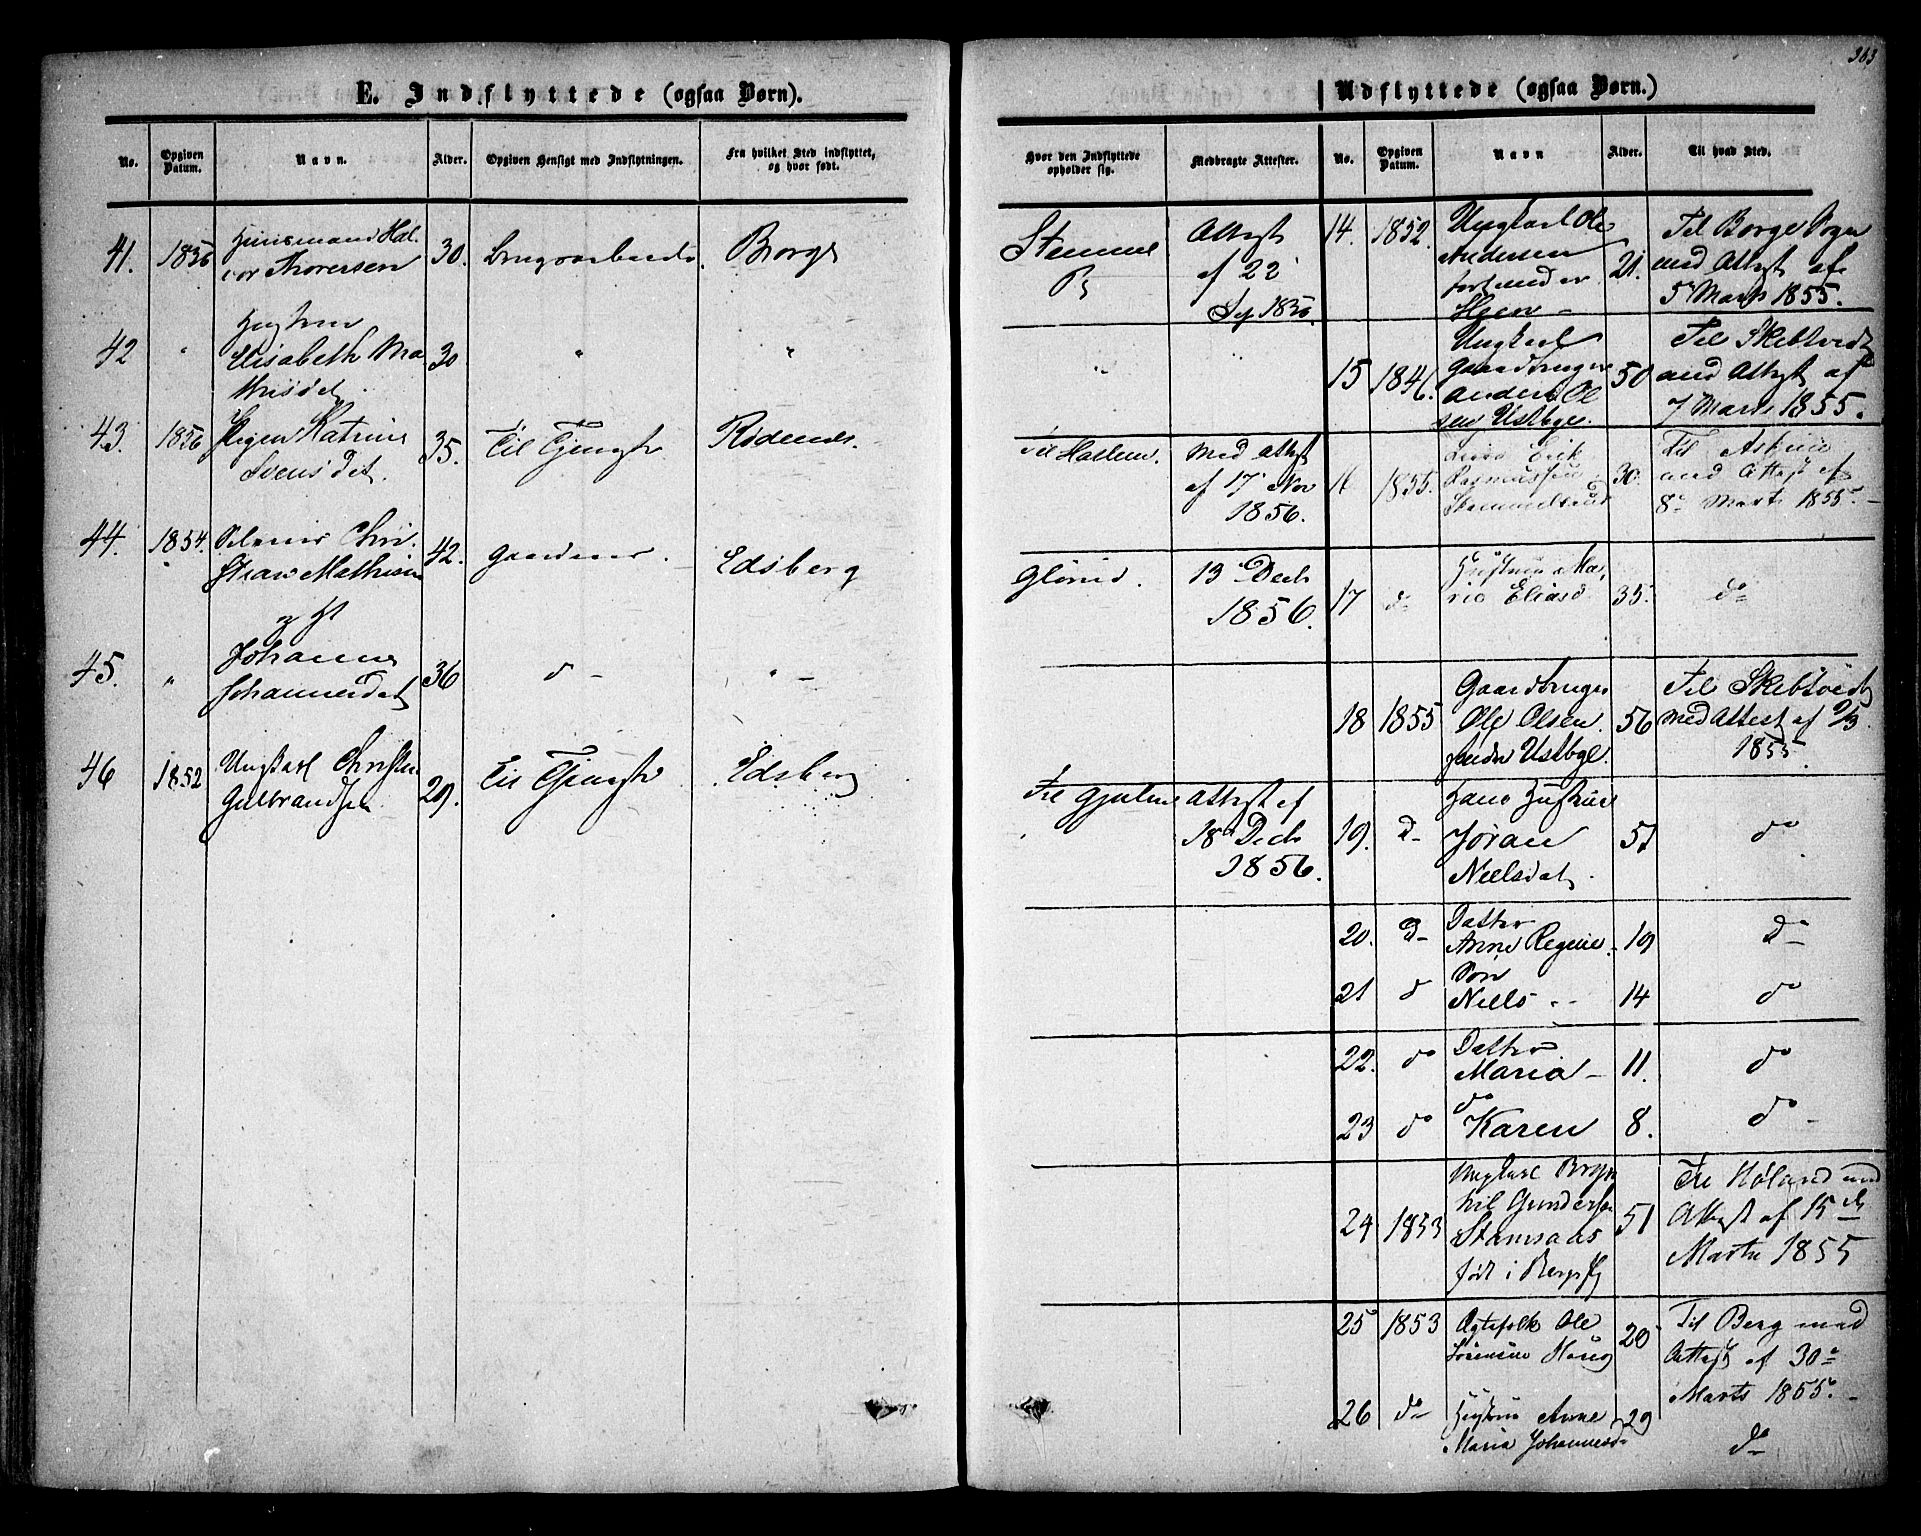 363
E. Indflyttede (ogsaa Børn).
No.
Opgiven Datum.
Navn.
Alder.
Opgiven Hensigt med Indflytningen.
Fra hvilket Sted indflyttet, og hvor født.
41. 1856 Huusmand Hal-
vor Thoresen 30. Borge
42 " Hustru
Elisabeth Ma-
thisdet. 30 " "
43. 1856 Pigen Katrine
Svensdet. 35. Til Tjeneste Rødenes.
44. 1854. Chri-
stian Mathisen 42. Edsberg
45. " Johanne
Johannesdat 36 d - " -
46 1852 Ungkarl Christen
Gulbrandsen 29. Til Tjeneste Edsberg
Udflyttede (ogsaa Børn.)
Hvor den Indflyttede opholder sig.
Medbragte Attester.
No.
Opgiven Datum.
Navn
Alder.
Til hvad Sted.
Attest
af 22
Sep 1856.
14. 1852. Ungkarl Ole
Andersen
født under
Heen - 21. Til Borge Sogn
med Attest af
5 Marts 1855.
" "
15 1846. Ungkarl
Gaardbruger
Anders Ol-
sen Ustbye. 50 Til Skibtvedt
med Attest af
7 Marts 1855.
Til Haslem. Med Attest
af 17 Nov
1856.
16 1855. Erik
Rasmussen 30. Til Askim
med Attest af
8de Marts 1855. -
13 Decb
1856.
17 do Hustru Ma-
rie Eliasd 35. do
18 1855 Gaardbruger
Ole Olsen
Ustbye. 56 Til Skibtvedt
med Attest af 9/3
1855.
Attest af
18 Decb
1856.
19. d- Hans Hustrue
Jøran
Nielsdat. 57 do
20. d- Datter
Anne Regine. 19 d-
21 d Søn
Niels - - 14 do
22. do Datter
Maria - 11. do
23 do do
Karen 8. do -
24 1853 Ungkarl
Gundersen
født i 51 Til Høland med
Attest af 15de
Marts 1855
25 1853 Ægtefolk Ole
Sørensen 20 Til Berg med
Attest af 30te
Marts 1855. -
26 do Hustru Anne
Maria Johannesd 29 do